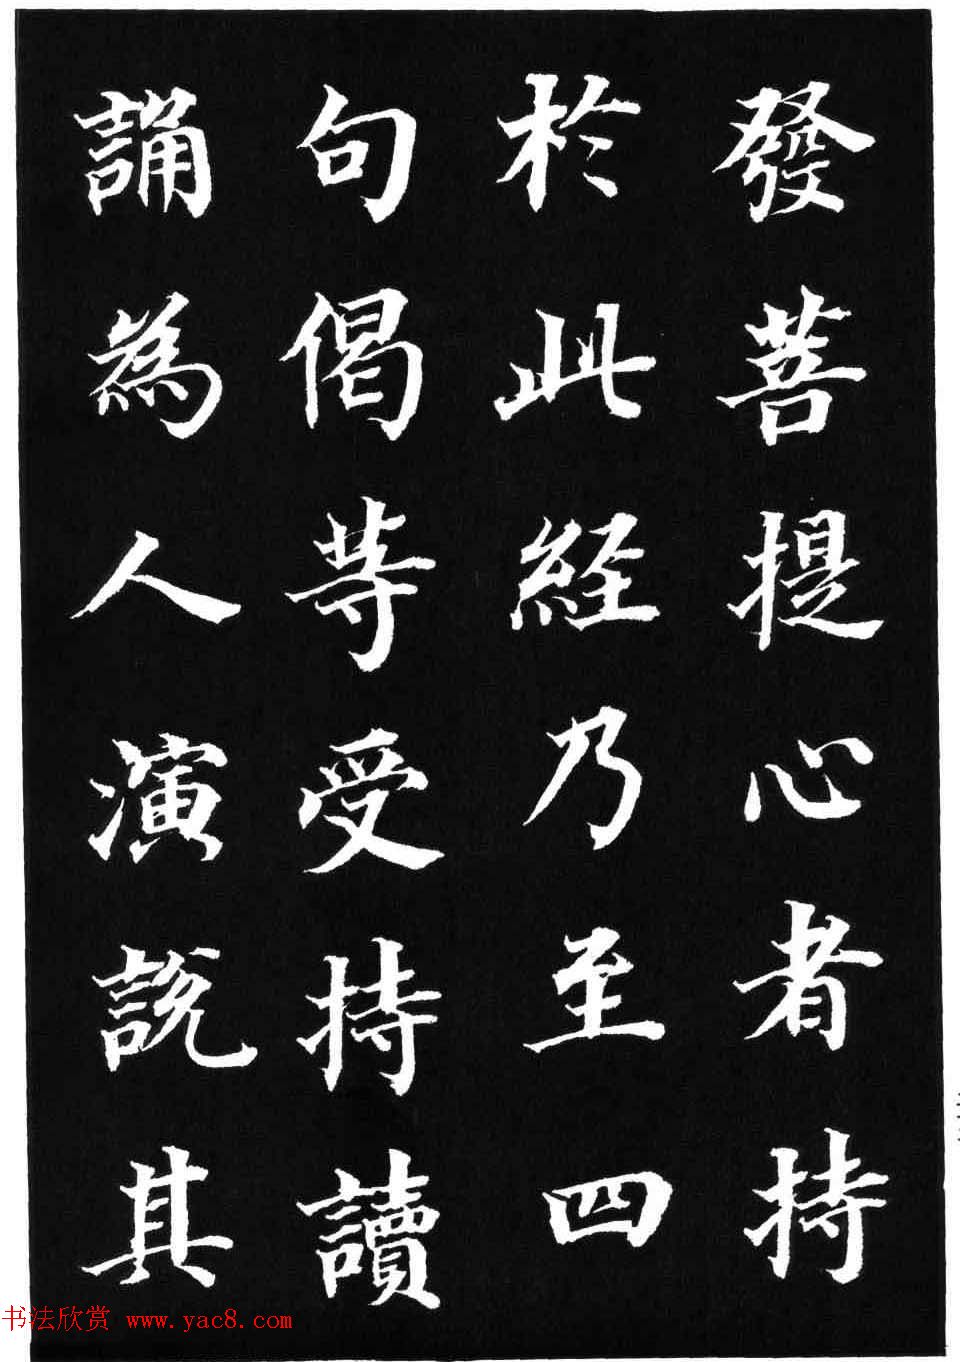 發菩提心者持
於此經乃至四
句偈等受持讀
誦為人演說其
书法欣赏 www.yac8.com